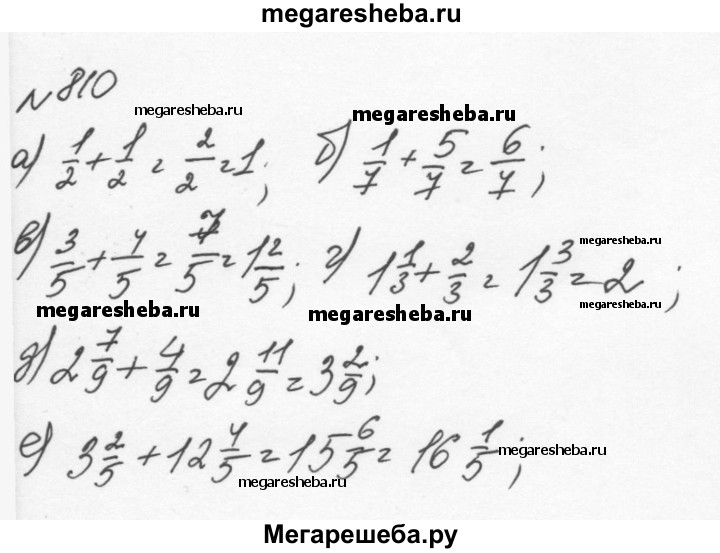 megaresheba.ru
№ 810
megaresheba.ru megaresheba.ru
а) 1/2 + 1/2 = 2/2 = 1; б) 1/7 + 5/7 = 6/7;
в) 3/5 + 4/5 = 7/5 = 1 2/5; г) 1 1/3 + 2/3 = 1 3/3 = 2;
megaresheba.ru
megaresheba.ru megaresheba.ru
д) 2 7/9 + 4/9 = 2 11/9 = 3 2/9;
е) 3 2/5 + 12 4/5 = 15 6/5 = 16 1/5;
megaresheba.ru
megaresheba.ru
Мегарешеба.ру